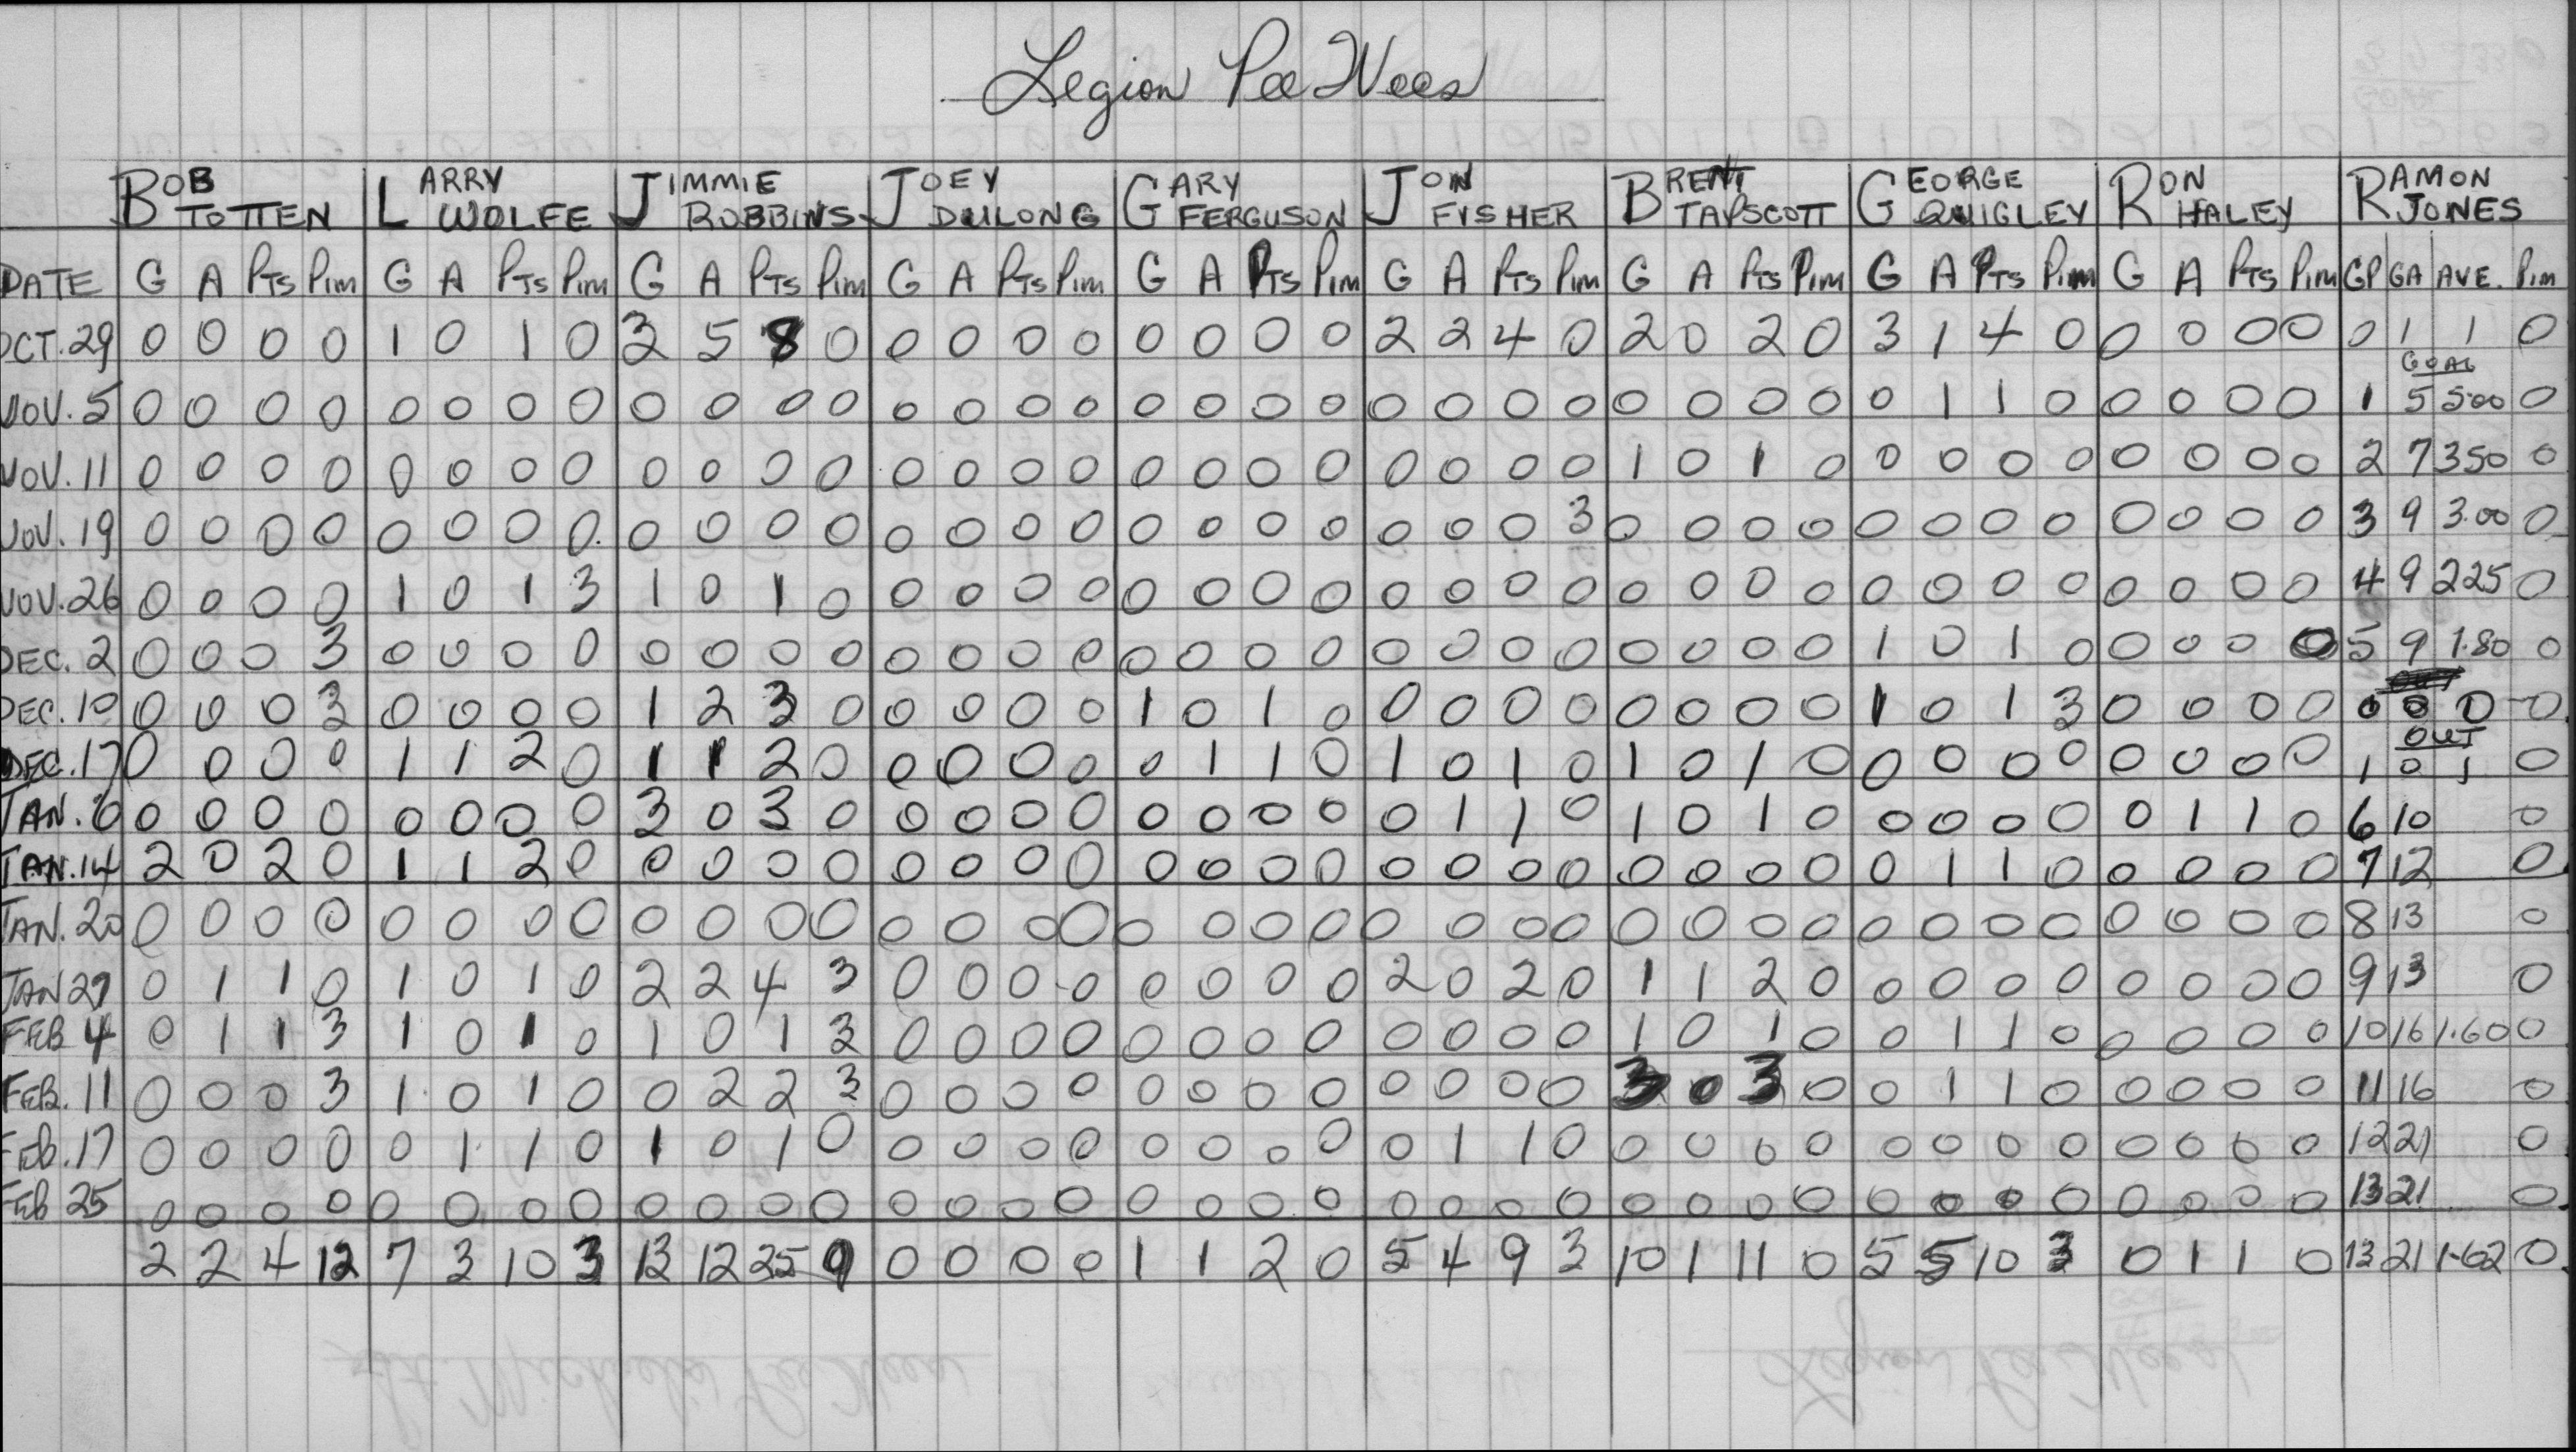 Legion Pee Wees
BOB TOTTEN LARRY WOLFE JIMMIE ROBBINS JOEY DULONG GARY FERGUSON JON FISHER BRENT TAPSCOTT GEORGE QUIGLEY RON HALEY RAMON JONES
DATE G A PTS PIM G A PTS PIM G A PTS PIM G A PTS PIM G A PTS PIM G A PTS PIM G A PTS PIM G A PTS PIM G A PTS PIM GP GA AVE. PIM
OCT. 29 0 0 0 0 1 0 1 0 3 5 8 0 0 0 0 0 0 0 0 0 2 2 4 0 2 0 2 0 3 1 4 0 0 0 0 0 0 1 1 0
GOAL
NOV. 5 0 0 0 0 0 0 0 0 0 0 0 0 0 0 0 0 0 0 0 0 0 0 0 0 0 0 0 0 0 1 1 0 0 0 0 0 1 5 5.00 0
NOV. 11 0 0 0 0 0 0 0 0 0 0 0 0 0 0 0 0 0 0 0 0 0 0 0 0 1 0 1 0 0 0 0 0 0 0 0 0 2 7 350 0
NOV. 19 0 0 0 0 0 0 0 0. 0 0 0 0 0 0 0 0 0 0 0 0 0 0 0 3 0 0 0 0 0 0 0 0 0 0 0 0 3 9 3.00 0
NOV. 26 0 0 0 0 1 0 1 3 1 0 1 0 0 0 0 0 0 0 0 0 0 0 0 0 0 0 0 0 0 0 0 0 0 0 0 0 4 9 225 0
DEC. 2 0 0 0 3 0 0 0 0 0 0 0 0 0 0 0 0 0 0 0 0 0 0 0 0 0 0 0 0 1 0 1 0 0 0 0 0 5 9 1.80 0
DEC. 10 0 0 0 3 0 0 0 0 1 2 3 0 0 0 0 0 1 0 1 0 0 0 0 0 0 0 0 0 1 0 1 3 0 0 0 0 0 0 0 0
OUT
DEC. 17 0 0 0 0 1 1 2 0 1 1 2 0 0 0 0 0 0 1 1 0 1 0 1 0 1 0 1 0 0 0 0 0 0 0 0 0 1 0 1 0
JAN. 6 0 0 0 0 0 0 0 0 3 0 3 0 0 0 0 0 0 0 0 0 0 1 1 0 1 0 1 0 0 0 0 0 0 1 1 0 6 10 0
JAN. 14 2 0 2 0 1 1 2 0 0 0 0 0 0 0 0 0 0 0 0 0 0 0 0 0 0 0 0 0 0 1 1 0 0 0 0 0 7 12 0
JAN. 20 0 0 0 0 0 0 0 0 0 0 0 0 0 0 0 0 0 0 0 0 0 0 0 0 0 0 0 0 0 0 0 0 0 0 0 0 8 13 0
JAN 27 0 1 1 0 1 0 1 0 2 2 4 3 0 0 0 0 0 0 0 0 2 0 2 0 1 1 2 0 0 0 0 0 0 0 0 0 9 13 0
FEB 4 0 1 1 3 1 0 1 0 1 0 1 3 0 0 0 0 0 0 0 0 0 0 0 0 1 0 1 0 0 1 1 0 0 0 0 0 10 16 1.60 0
FEB. 11 0 0 0 3 1 0 1 0 0 2 2 3 0 0 0 0 0 0 0 0 0 0 0 0 3 0 3 0 0 1 1 0 0 0 0 0 11 16 0
Feb. 17 0 0 0 0 0 1 1 0 1 0 1 0 0 0 0 0 0 0 0 0 0 1 1 0 0 0 0 0 0 0 0 0 0 0 0 0 12 21 0
Feb 25 0 0 0 0 0 0 0 0 0 0 0 0 0 0 0 0 0 0 0 0 0 0 0 0 0 0 0 0 0 0 0 0 0 0 0 0 13 21 0
2 2 4 12 7 3 10 3 13 12 25 9 0 0 0 0 1 1 2 0 5 4 9 3 10 1 11 0 5 5 10 3 0 1 1 0 13 21 1.62 0